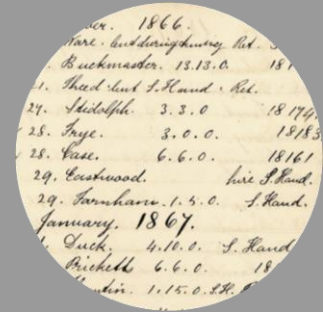 ber. 1866.
Ware. lent during hiring Ret. S
Buckmaster. 13.13.0. 181
21. Theed lent S. Hand. Ret.
27. Stidolph. 3.3.0 18174
28. Frye. 3.0.0. 18183
28. Case. 6.6.0. 18161
29. Eastwood. hire S. Hand.
29. Farnham. 1.5.0. S. Hand.
January. 1867.
1. Duck. 4.10.0. S. Hand
Brickett 6.6.0. 18
1.15.0. S.H.